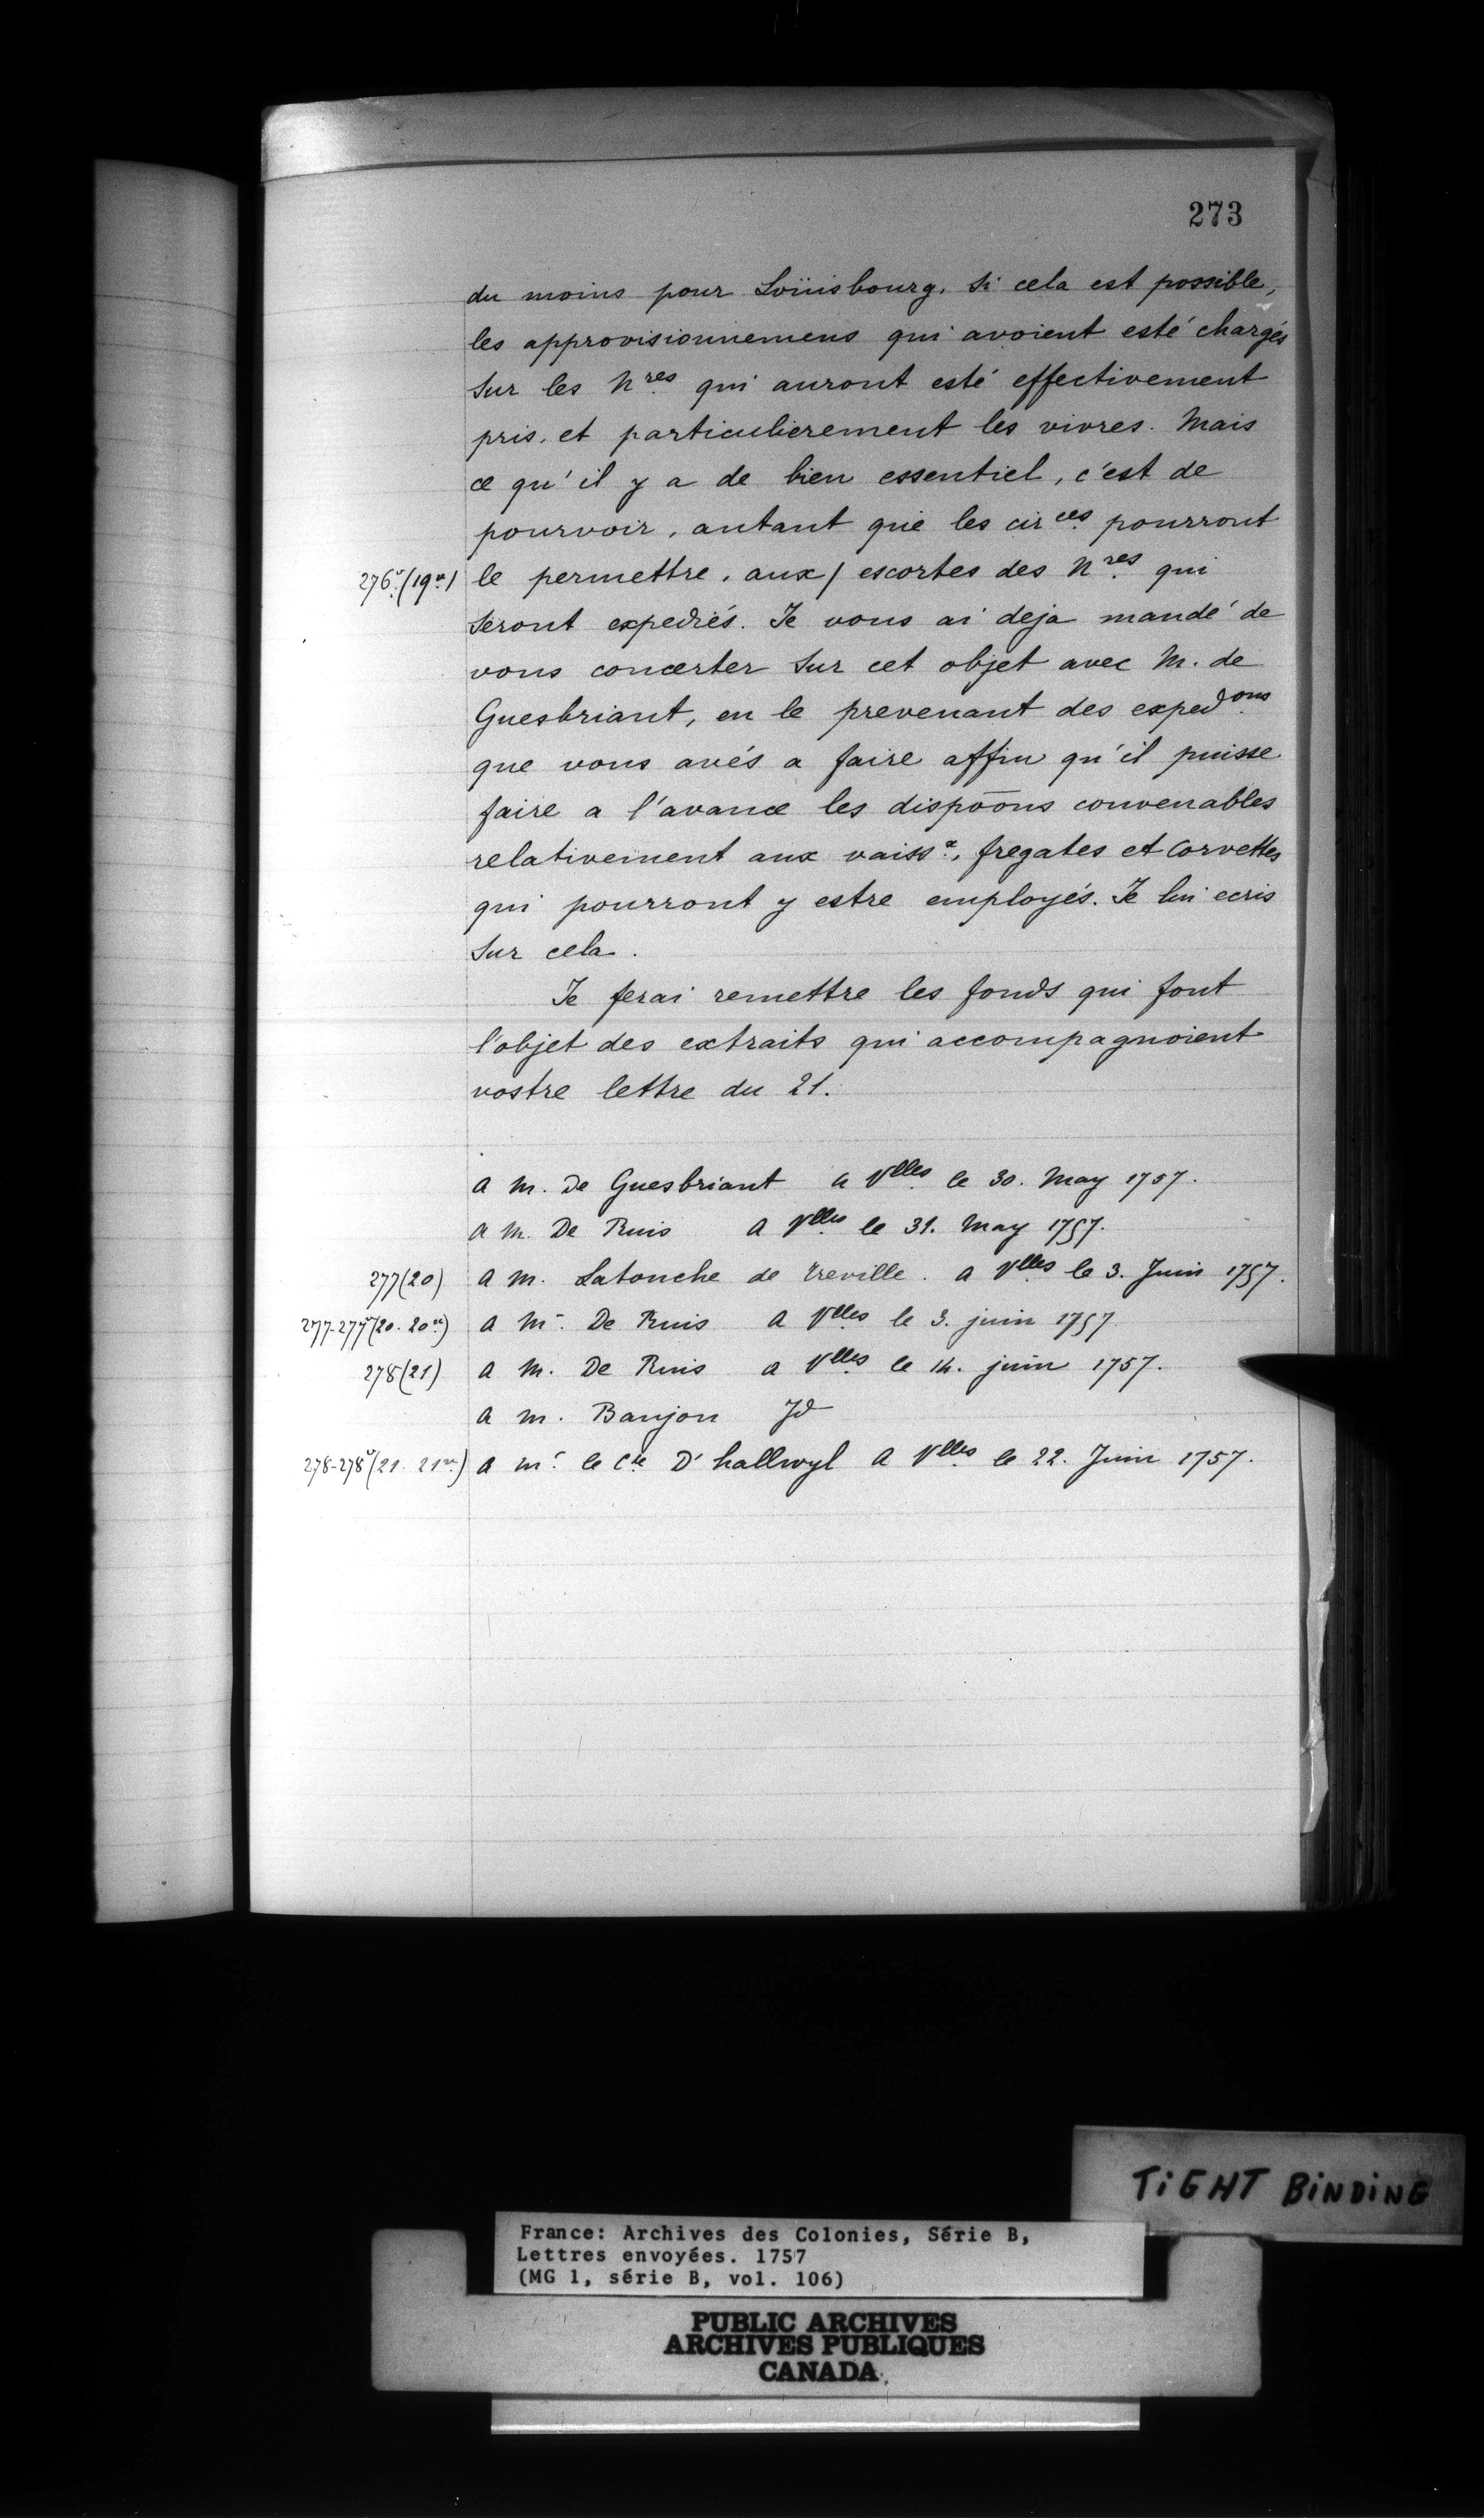 273
du moins pour Loüisbourg. Si cela est possible,
les approvisionnemens qui avoient esté chargés
sur les Nres qui auront esté effectivement
pris, et particulierement les vivres. Mais
ce qu'il y a de bien essentiel, c'est de
pourvoir, autant que les circes pourront
276v (19v) le permettre, aux / escortes des Nres qui
seront expediés. Je vous ai deja mandé de
vous concerter sur cet objet avec M. de
Guesbriant, en le prevenant des expedons
que vous avés a faire affin qu'il puisse
faire a l'avance les dispōōns convenables
relativement aux vaissx, fregates et corvettes
qui pourront y estre employés. Je lui ecris
sur cela.
Je ferai remettre les fonds qui font
l'objet des extraits qui accompagnoient
vostre lettre du 21.
a M. de Guesbriant a Vlles le 30. May 1757.
a M. De Ruis A Vlles le 31. May 1757.
277 (20) a M. Latouche de Treville. a Vlles le 3. Juin 1757.
277-277v (20. 20v) a Mr. De Ruis A Vlles le 3. juin 1757
278 (21) a M. De Ruis a Vlles le 14. juin 1757.
a M. Banjon Jd
278-278v (21. 21v) a Mr. le Cte D'hallwyl A Vlles le 22. Juin 1757.
TIGHT BINDING
France: Archives des Colonies, Série B,
Lettres envoyées. 1757
(MG 1, série B, vol. 106)
PUBLIC ARCHIVES
ARCHIVES PUBLIQUES
CANADA